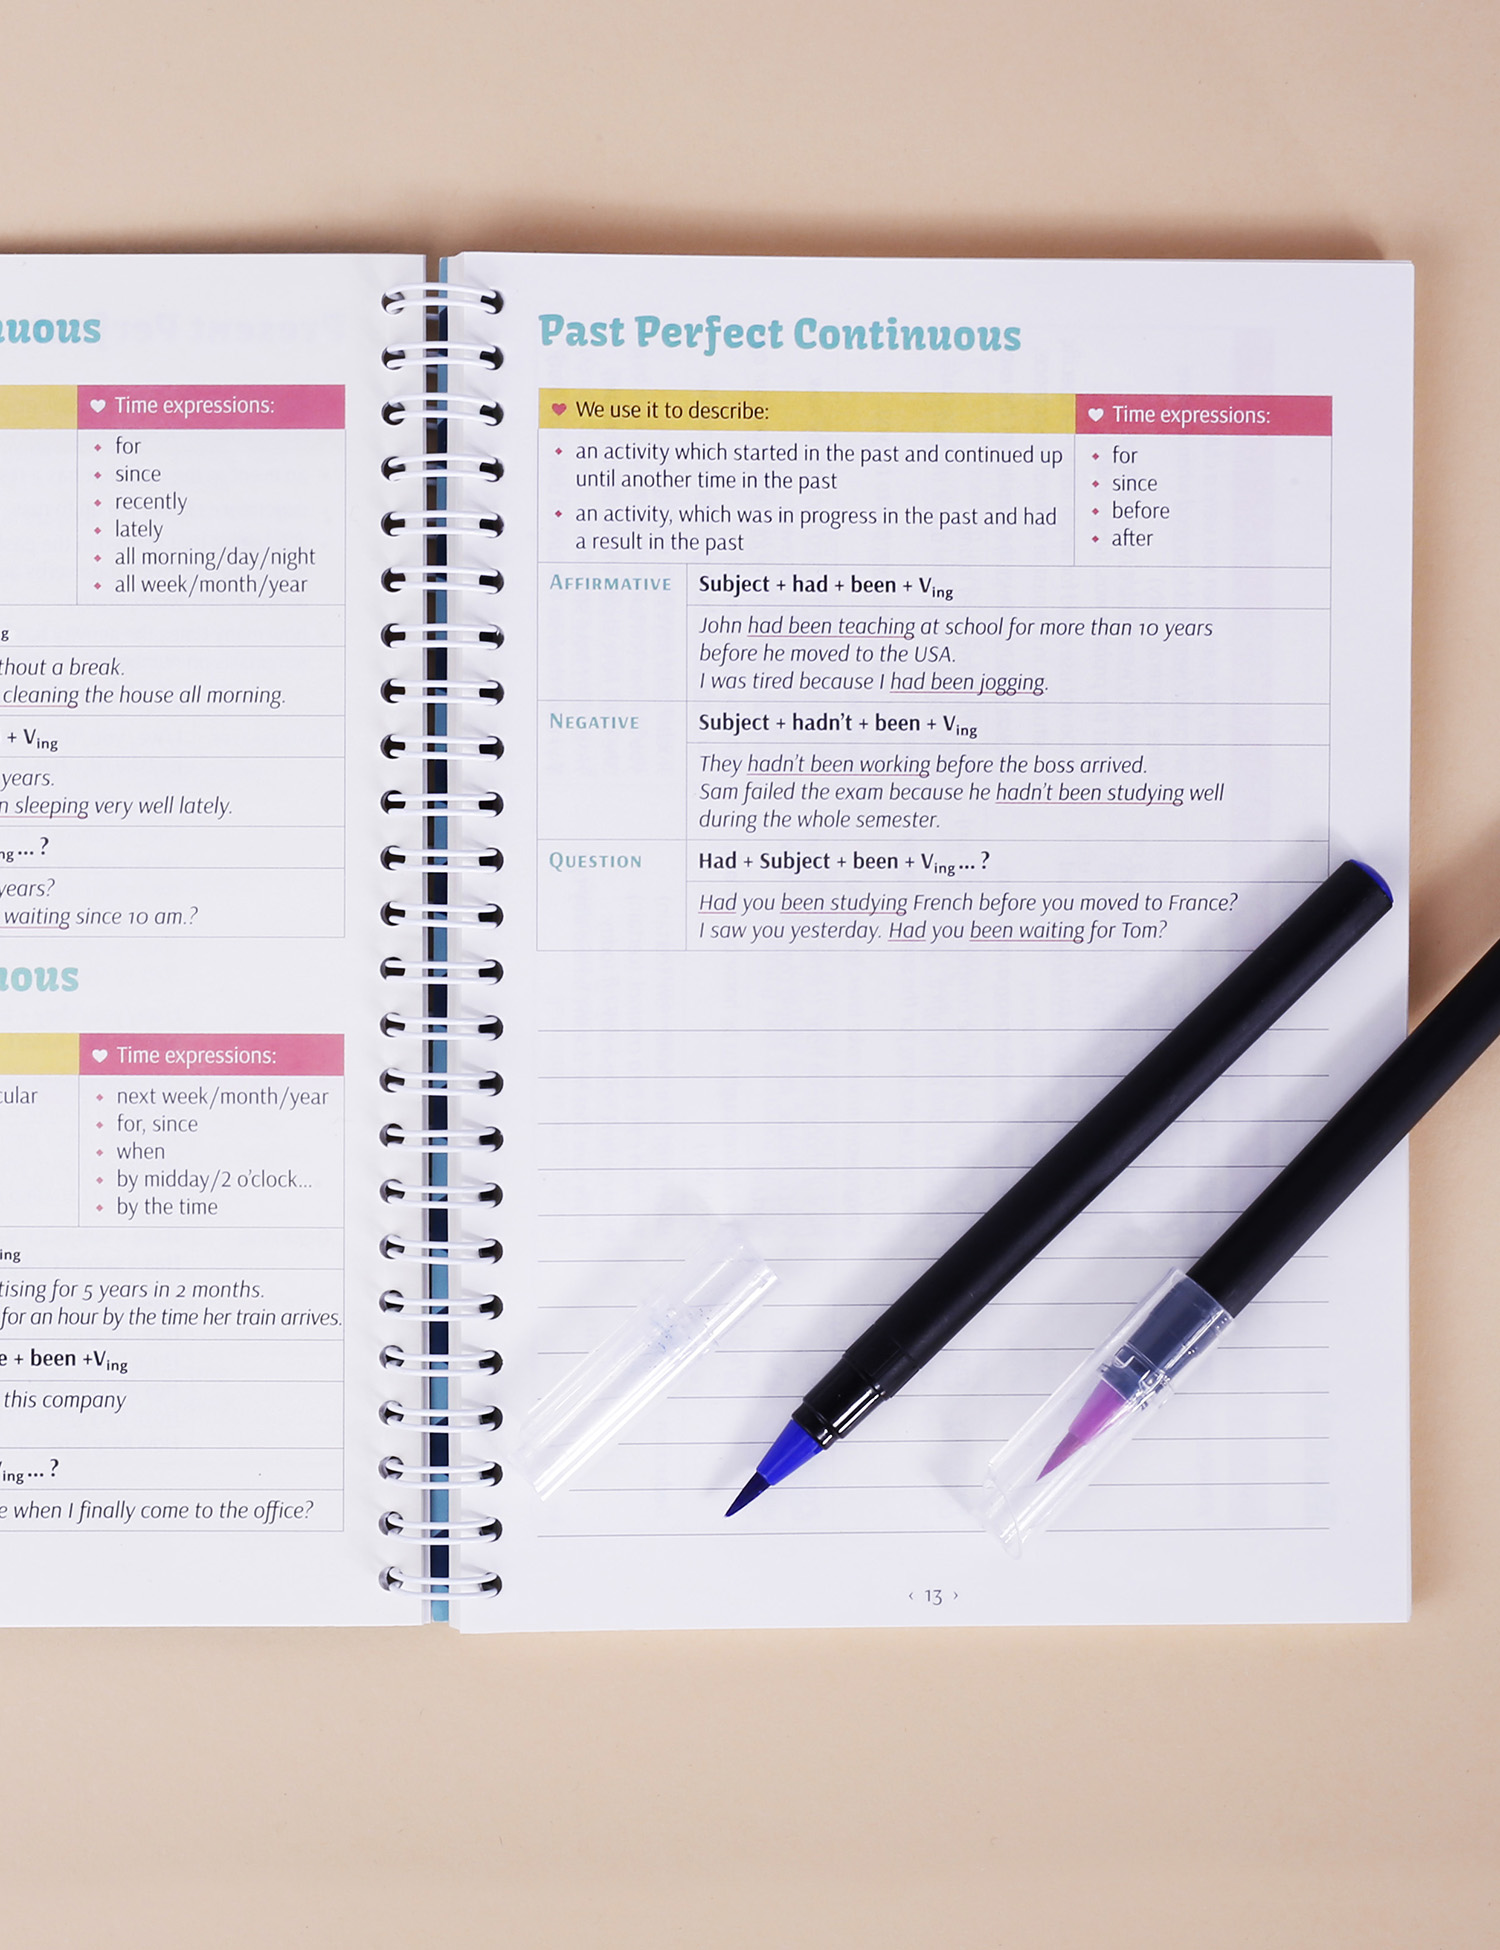 nuous
Time expressions:
for
since
recently
lately
all morning/day/night
all week/month/year
g
thout a break.
cleaning the house all morning.
+ Ving
years.
n sleeping very well lately.
ng... ?
years?
waiting since 10 am.?
uous
Time expressions:
cular
next week/month/year
for, since
when
by midday/2 o'clock...
by the time
ing
tising for 5 years in 2 months.
for an hour by the time her train arrives.
e + been +Ving
this company
ing... ?
e when I finally come to the office?
Past Perfect Continuous
We use it to describe:
Time expressions:
an activity which started in the past and continued up
until another time in the past
an activity, which was in progress in the past and had
a result in the past
for
since
before
after
AFFIRMATIVE
Subject + had + been + Ving
John had been teaching at school for more than 10 years
before he moved to the USA.
I was tired because I had been jogging.
NEGATIVE
Subject + hadn't + been + Ving
They hadn't been working before the boss arrived.
Sam failed the exam because he hadn't been studying well
during the whole semester.
QUESTION
Had + Subject + been + Ving... ?
Had you been studying French before you moved to France?
I saw you yesterday. Had you been waiting for Tom?
‹ 13 ›